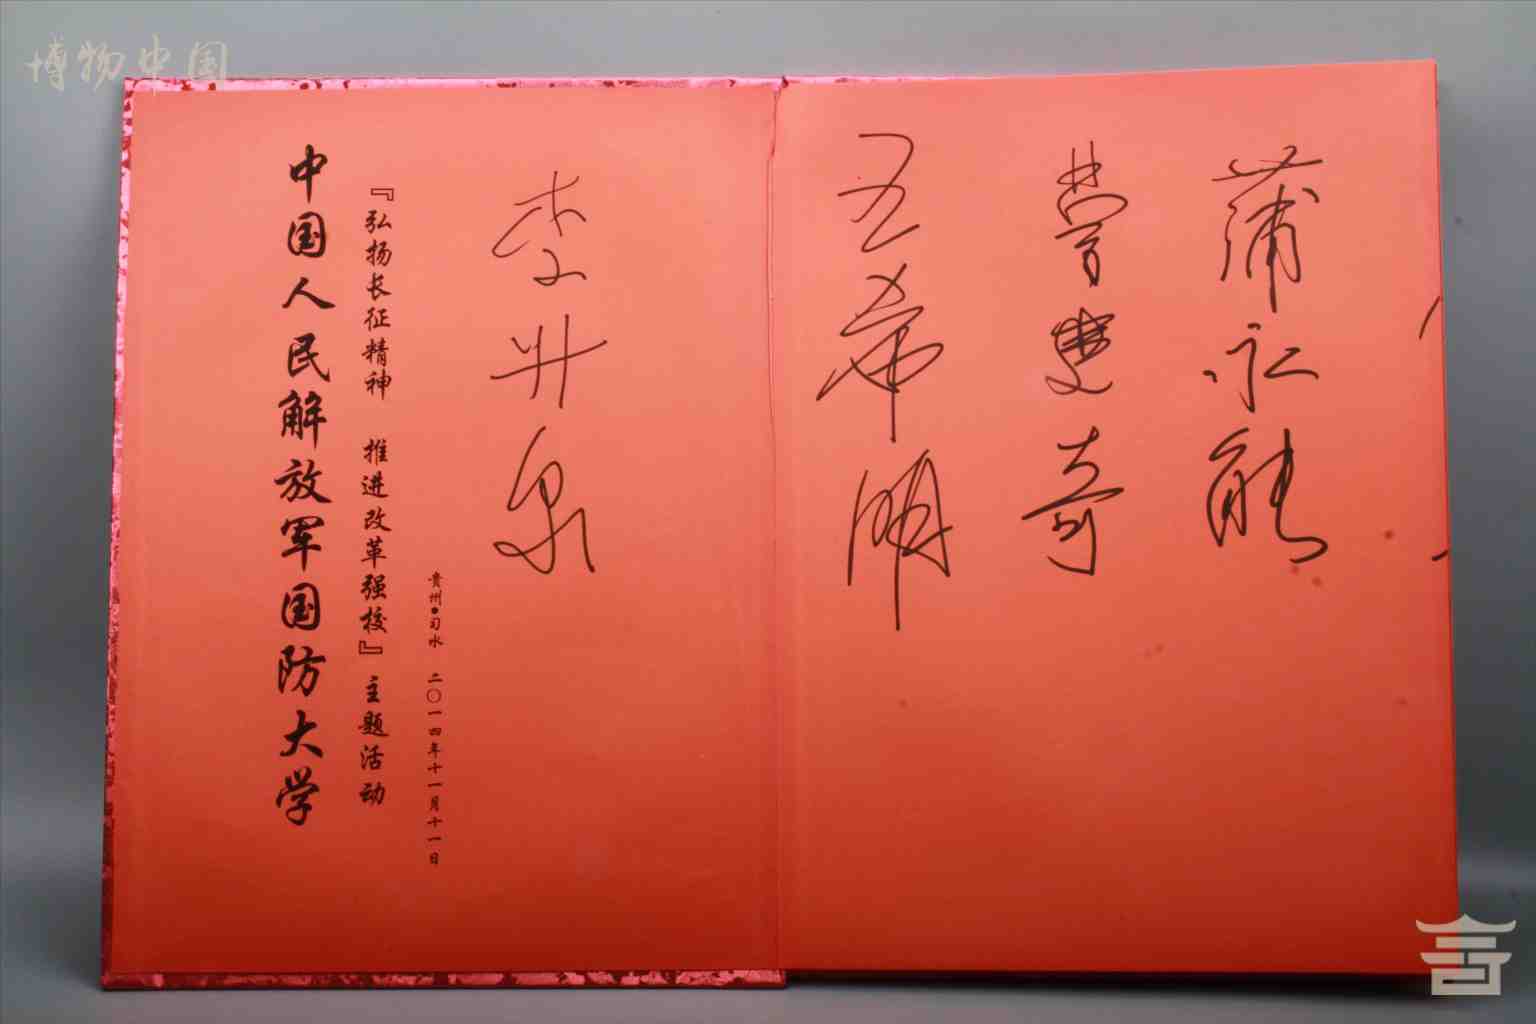 博物中国
中国人民解放军国防大学
『弘扬长征精神 推进改革强校』主题活动
贵州•习水 二〇一四年十一月十一日
李升泉
王希明
奇
蒲永能